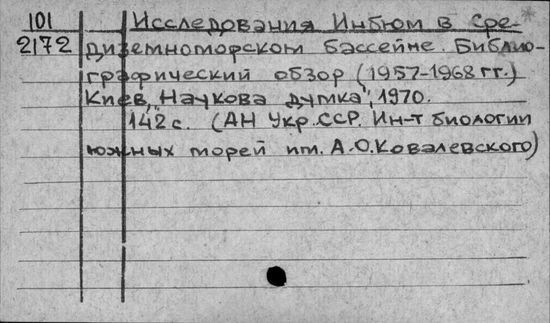 101 Исследования Инбюм в Сре-
2172 диземноморском бассейне. Библио-
графический обзор (1957-1968 гг.)
Киев, "Наукова думка", 1970.
142 с. (АН Укр.ССР. Ин-т биологии
южных морей им. А.О.Ковалевского)